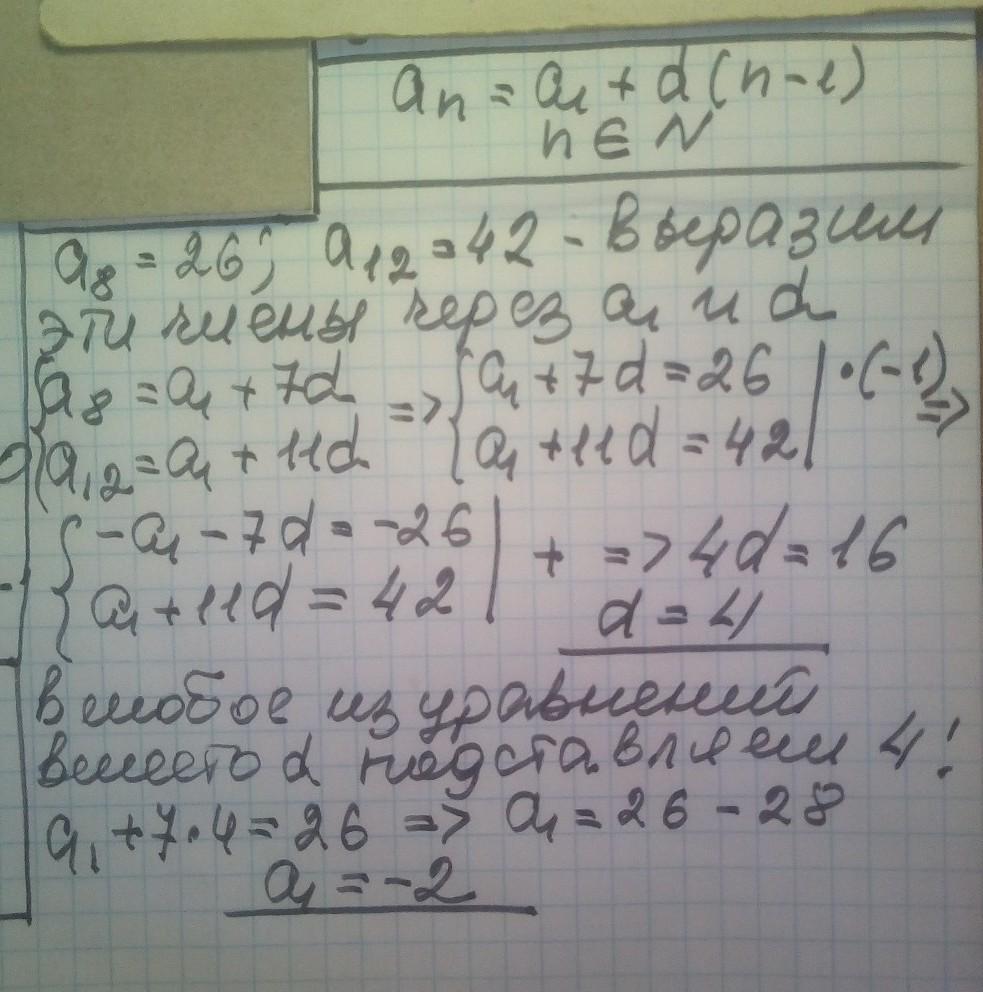 aₙ = a₁ + d(n-1)
n ∈ N
a₈ = 26; a₁₂ = 42 - Выразим
эти члены через a₁ и d
{a₈ = a₁ + 7d => {a₁ + 7d = 26 | ·(-1) =>
{a₁₂ = a₁ + 11d {a₁ + 11d = 42 |
{-a₁ - 7d = -26 | + => 4d = 16
{a₁ + 11d = 42 | d = 4
в любое из уравнений
вместо d подставляем 4!
a₁ + 7·4 = 26 => a₁ = 26 - 28
a₁ = -2